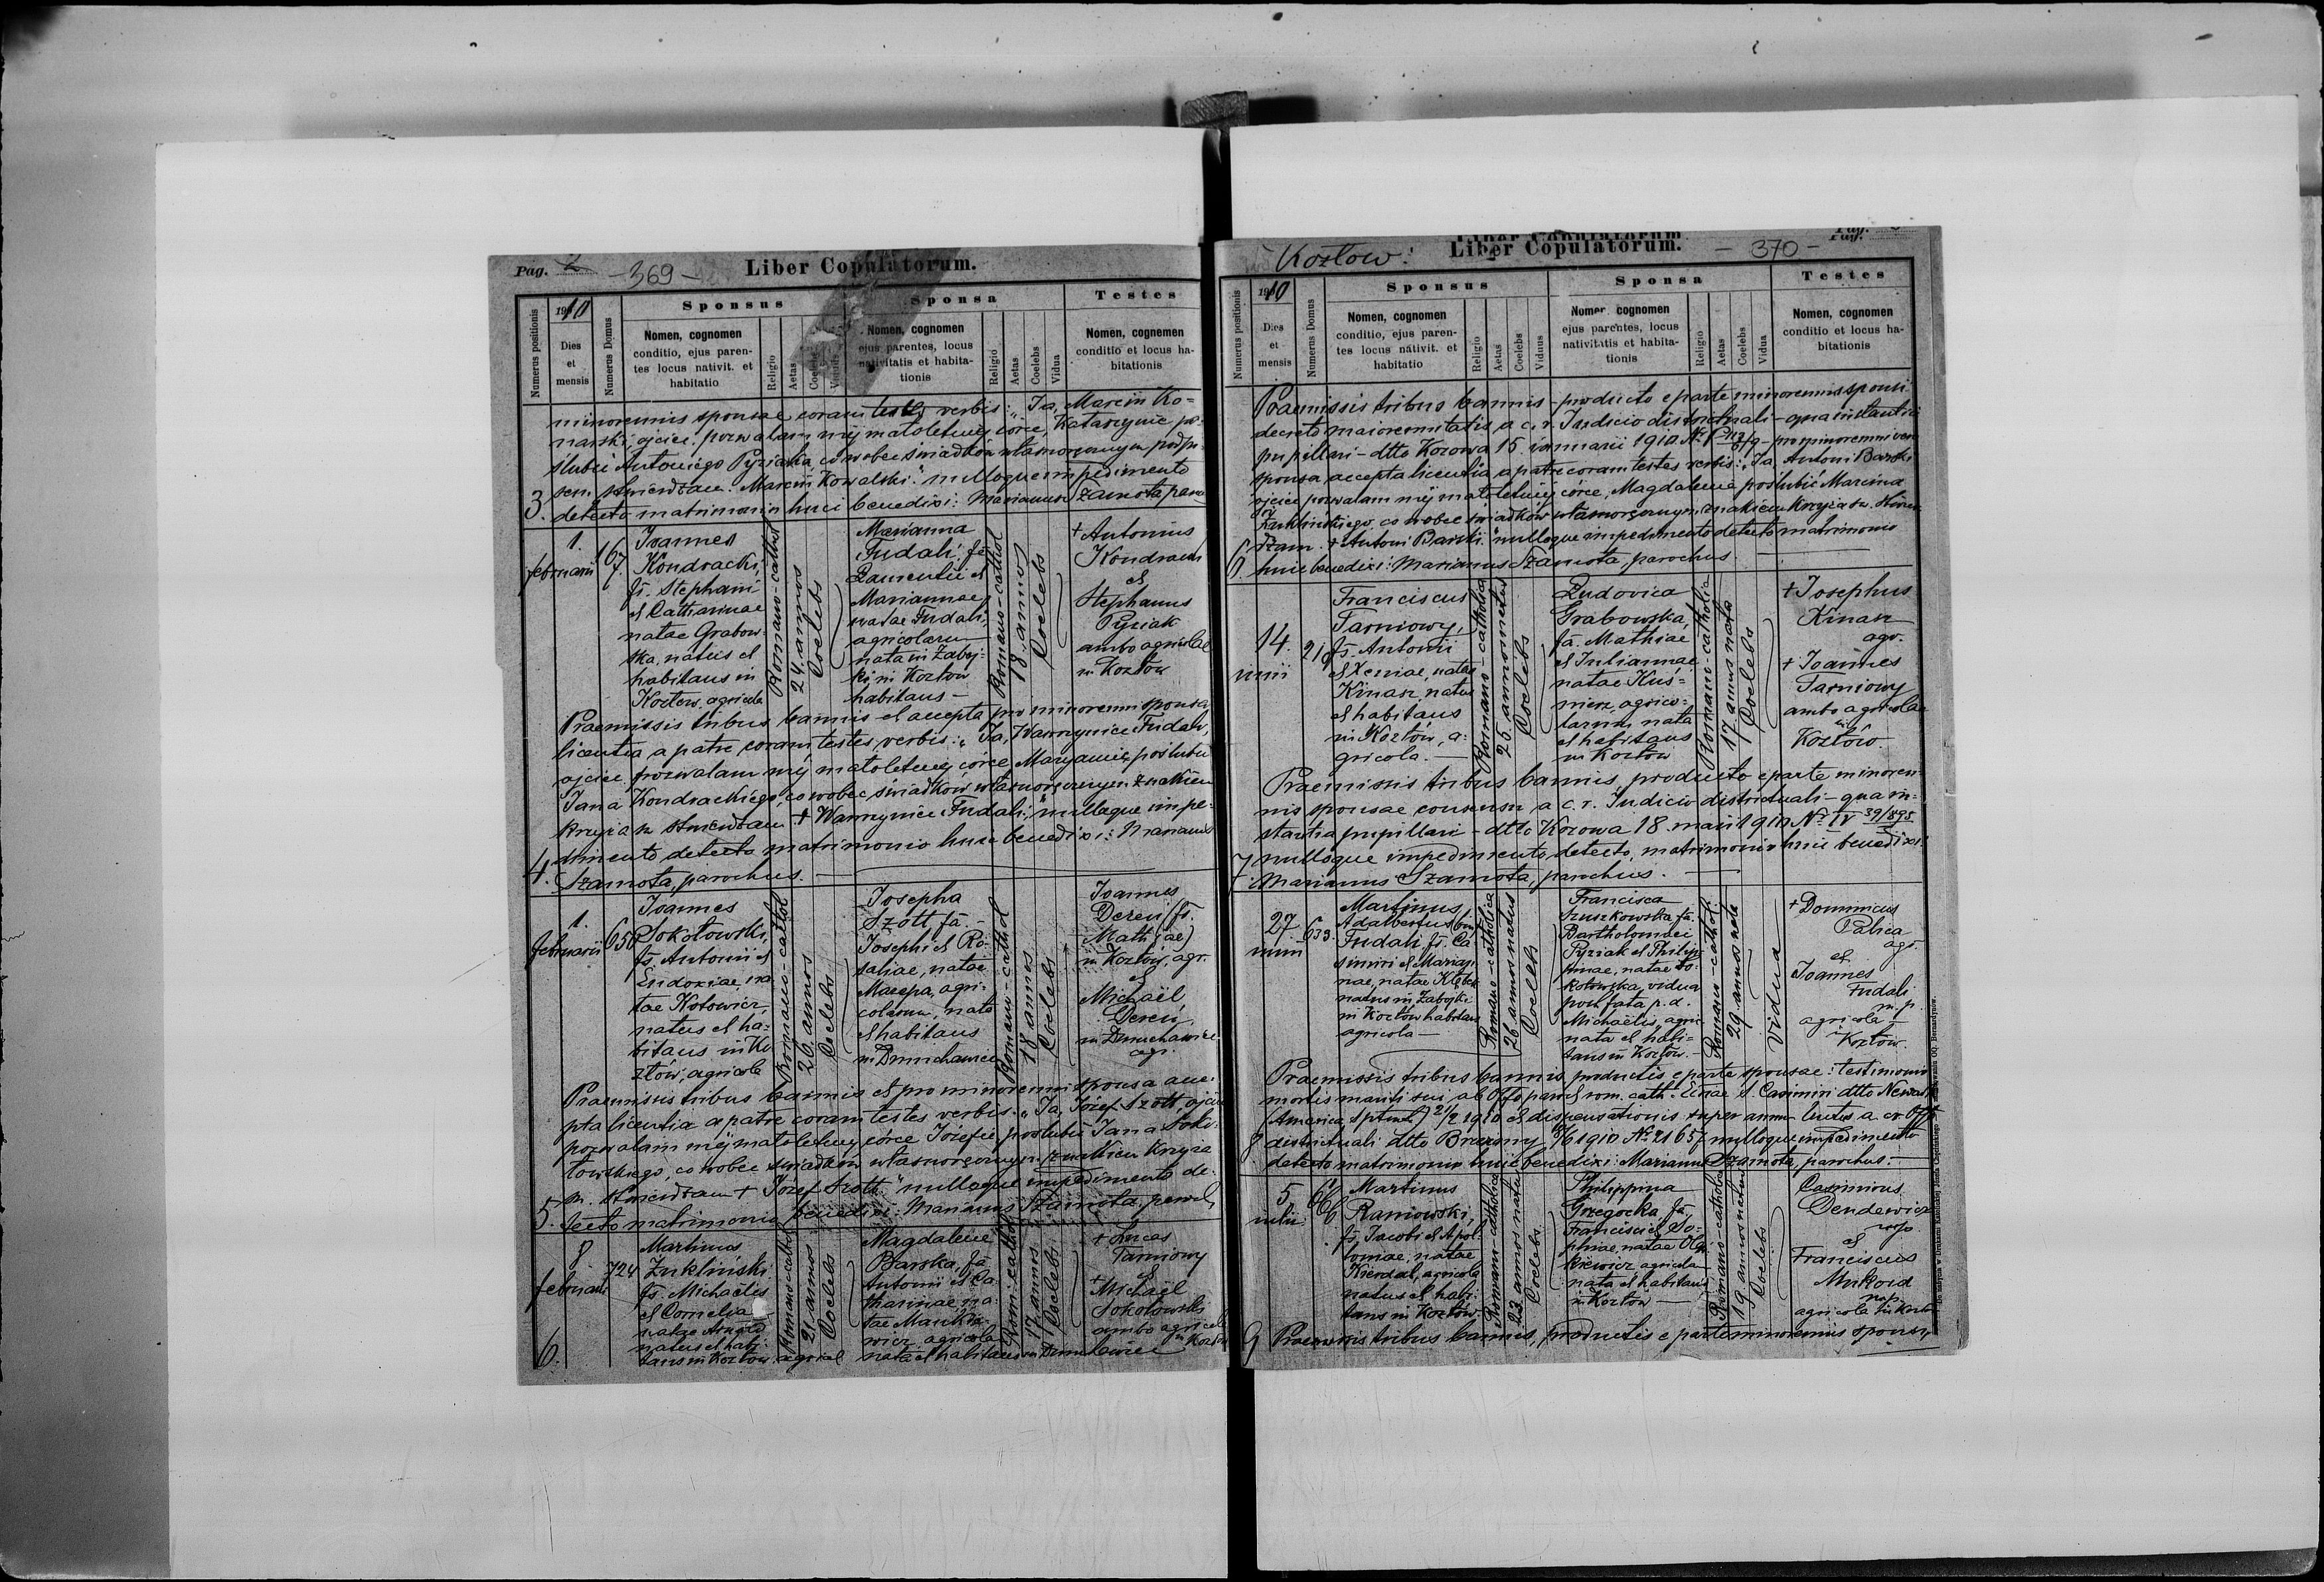 Pag. 2 - 369 - Liber Copulatorum.
Numerus positionis
1910
Dies et mensis
Numerus Domus
Sponsus
Nomen, cognomen
conditio, ejus paren-
tes locus nativit. et
habitatio
Religio
Aetas
Coelebs
Viduus
Sponsa
Nomen, cognomen
ejus parentes, locus
nativitatis et habita-
tionis
Religio
Aetas
Coelebs
Vidua
Testes
Nomen, cognemen
conditio et locus ha-
bitationis
minorennis sponsae coram testes verbis: „Ja, Marcin Ko=
narski, ojciec pozwalam mej małoletniej córce, Katarzynie po=
ślubić Antoniego Pyziaka, co wobec świadków własnoręcznym podpi=
sem stwierdzam. Marcin Kowalski." nulloque impedimento
3. detecto matrimonio huic benedixi: Marianus Szamota paro
1.
februarii
167.
Joannes
Kondracki,
fs. Stephani
et Catharinae
natae Grabow-
ska, natus et
habitans in
Kozłow, agricola
Romano-cathol
24 annos
Coelebs
Marianna
Fudali, fa
Laurentii et
Mariannae
natae Fudali,
agricolarum
nata in Zaboj=
ki in Kozłow
habitans -
Romano-cathol
18 annos
Coelebs
+ Antonius
Kondracki
et
Stephanus
Pyziak
ambo agricolae
in Kozłow
Praemissis tribus bannis et accepta pro minorenni sponsa
licentia a patre coram testes verbis: „Ja, Wawrzyniec Fudali,
ojciec pozwalam mej małoletniej córce Maryannie poślubić
Jana Kondrackiego, co wobec świadków własnoręcznym znakiem
krzyża św. stwierdzam + Wawrzyniec Fudali," nulloque impe-
dimento detecto matrimonio huic benedixi: Marianus
4. Szamota, parochus.
1.
februarii
656
Joannes
Sokołowski,
fs. Antonii et
Eudoxiae, na
tae Kotowicz,
natus et ha=
bitans in Ko
złow, agricola
Romano-cathol
26 annos
Coelebs
Josepha
Szott fa.
Josephi et Ro-
saliae, natae
Mazepa, agri=
colarum, nata
et habitans
in Dmuchawiec
Romano-cathol
18 annos
Coelebs
Joannes
Dereń (fs.
Mathiae)
in Kozłow, agr.
et
Michaël
Dereń,
in Dmuchawiec
agr.
Praemissis tribus bannis et pro minorenni sponsa acce=
pta licentia a patre coram testes verbis: „Ja, Józef Szott, ojciec
pozwalam mej małoletniej córce Józefie poślubić Jana Soko-
łowskiego, co wobec świadków własnoręcznym znakiem krzyża
św. stwierdzam + Józef Szott." nulloque impedimento de=
5. tecto matrimonio benedixi: Marianus Szamota, paroch
8
februarii
724
Martinus
Żukliński
fs. Michaëlis
et Cornelia
natae
natus et habi-
tans in Kozłow, agricol
Romano-cathol
21 annos
Coelebs
Magdalene
Barska, fa
Antonii et Ca=
tharinae, na=
tae
agricola
nata et habitans in Dmuchawiec
Rom. cathol
17 annos
Coelebs
+ Lucas
Tarniowy
et
+ Michaël
Sokołowski
ambo agricolae
in Kozłów
6.
Kozłow: Liber Copulatorum. - 370 - Pag.
Numerus positionis
1910
Dies et mensis
Numerus Domus
Sponsus
Nomen, cognomen
conditio, ejus paren-
tes locus nativit. et
habitatio
Religio
Aetas
Coelebs
Viduus
Sponsa
Nomen, cognomen
ejus parentes, locus
nativitatis et habita-
tionis
Religio
Aetas
Coelebs
Vidua
Testes
Nomen, cognomen
conditio et locus ha-
bitationis
Praemissis tribus bannis - producto e parte minorennis sponsi
decreto maiorennitatis a c. r. Judicio districtuali - qua instantia
pupillari - dtto Kozowa 15 januarii 1910 - pro minorenni vero
sponsa accepta licentia a patre coram testes verbis: „Ja, Antoni Barski
ojciec pozwalam mej małoletniej córce, Magdalenie poślubić Marcina
Żuklińskiego, co wobec świadków własnoręcznym znakiem krzyża św. stwier-
dzam. + Antoni Barski." nulloque impedimento detecto matrimonio
6. huic benedixi: Marianus Szamota, parochus.
14.
junii
218
Franciscus
Tarniowy,
fs. Antonii
et Xeniae, natae
Kinasz, natus
et habitans
in Kozłów, a=
gricola.
Romano-catholica
25 annos natus
Coelebs
Ludovica
Grabowska,
fa. Mathiae
et Julianna
natae Kuś=
nierz, agrico=
larum nata
et habitans
in Kozłow
Romano-catholica
17 annos nata
Coelebs
+ Josephus
Kinasz
agr.
+ Joannes
Tarniowy
ambo agricolae
in
Kozłow.
Praemissis tribus bannis, producto e parte minoren=
nis sponsae consensu a c. r. Judicio districtuali - qua in=
stantia pupillari - dtto Kozowa 18. maii 1910 № IV 39/895
nulloque impedimento detecto, matrimonio huic benedixi:
7. Marianus Szamota, parochus.
27.
junii
633.
Martinus,
Adalbertus
Fudali, fs. Ca
simiri et Marian
nae, natae
natus in Zabojki
in Kozłow habitans
agricola -
Romano-catholica
26 annos natus
Coelebs
Francisca
Szuszkowska fa.
Bartholomaei
Pyziak et Philip
pinae, natae So-
kołowska, vidua
post fata p. d.
Michaëlis, agric
nata et habi=
tans in Kozłow.
Romano-cathol.
29 annos nata
Vidua
+ Dominicus
Palica
agr.
et
Joannes
Fudali
m.p.
agricola
in Kozłow.
Praemissis tribus bannis, productis e parte sponsae: testimonio
mortis mariti sui ab Offo paroch rom. cath. Ecclae S. Casimiri dtto Newark
(America Sptnal) 21/2 1910 et dispensationis super annum luctus a cr. Off
8. districtuali dtto Brzeżany 1910 № 21657 nulloque impedimento
detecto matrimonio huic benedixi: Marianus Szamota, parochus.
5
julii
66
Martinus
Raniowski,
fs. Jacobi et Apol=
loniae, natae
Kierdal, agricola
natus et habi-
tans in Kozłów.
Romano-catholica
23 annos natus
Coelebs
Philippina
Grzegocka fa.
Francisci et So=
phiae, natae
agricola
nata et habitans
in Kozłów
Romano-catholica
19 annos nata
Coelebs
Casimirus
Dendewicz
et
Franciscus
m.p.
agricola in Kozłow
9 Praemissis tribus bannis, productis e parte minorennis sponsi,